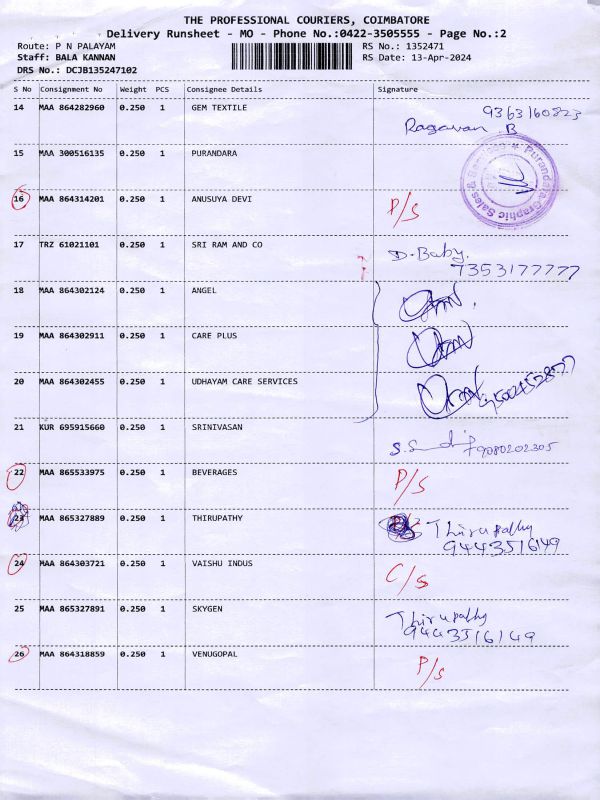 THE PROFESSIONAL COURIERS, COIMBATORE
Delivery Runsheet - MO - Phone No.:0422-3505555 - Page No.:2
Route: P N PALAYAM
RS No.: 1352471
Staff: BALA KANNAN
RS Date: 13-Apr-2024
DRS No.: DCJB135247102
S No Consignment No Weight PCS Consignee Details Signature
14 MAA 864282960 0.250 1 GEM TEXTILE 9363160823
Ragavan B
15 MAA 300516135 0.250 1 PURANDARA
Purandara Graphic Sales &
16 MAA 864314201 0.250 1 ANUSUYA DEVI P/S
17 TRZ 61021101 0.250 1 SRI RAM AND CO D. Baby.
7353177777
18 MAA 864302124 0.250 1 ANGEL
19 MAA 864302911 0.250 1 CARE PLUS
20 MAA 864302455 0.250 1 UDHAYAM CARE SERVICES
21 KUR 695915660 0.250 1 SRINIVASAN 9080202305
22 MAA 865533975 0.250 1 BEVERAGES P/S
23 MAA 865327889 0.250 1 THIRUPATHY Thirupathy
9443516149
24 MAA 864303721 0.250 1 VAISHU INDUS C/S
25 MAA 865327891 0.250 1 SKYGEN Thirupathy
9443516149
26 MAA 864318859 0.250 1 VENUGOPAL P/S